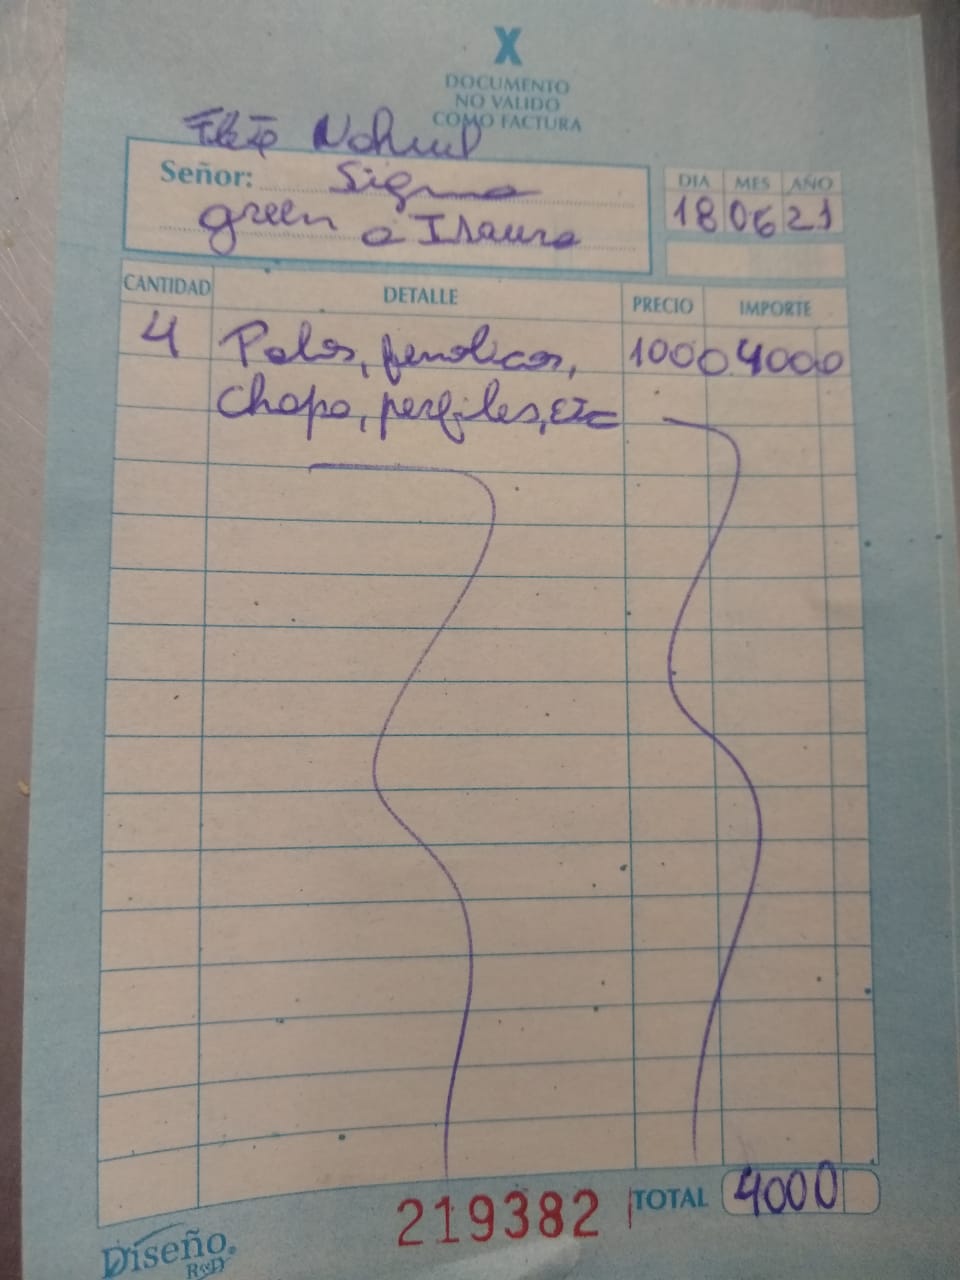 X
DOCUMENTO
NO VALIDO
COMO FACTURA
Flete Nahuel
Señor: Sigma
green a Isaura
DIA MES AÑO
18 06 21
CANTIDAD DETALLE PRECIO IMPORTE
4 Palos, fenolicos, 1000 4000
Chapa, perfiles, etc
219382 TOTAL 4000
Diseño
R&D